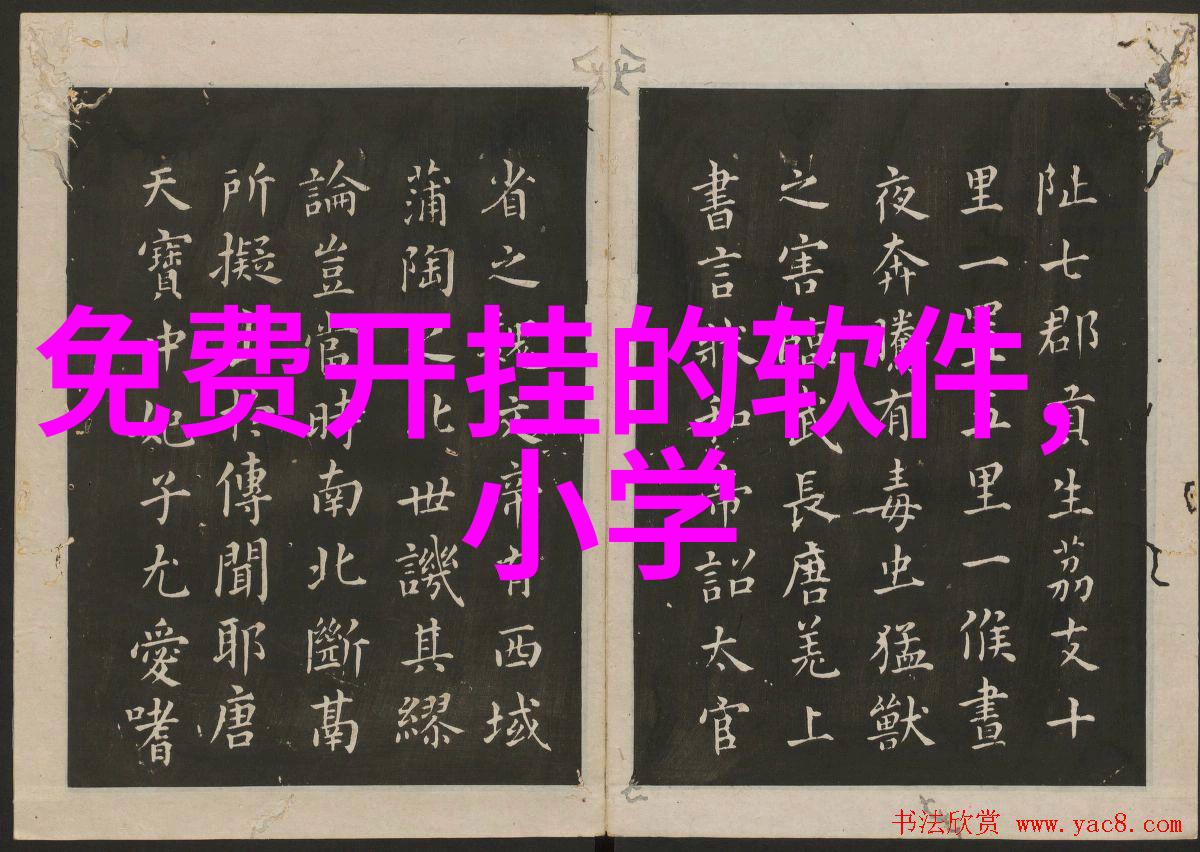 免费开挂的软件,
小学
阯七郡貢生荔支十
里一置五里一候晝
夜奔騰有毒虫猛獸
之害臨武長唐羌上
書言狀和帝詔太官
省之魏文帝有西域
蒲陶之比世譏其繆
論豈當時南北斷鬲
所擬出於傳聞耶唐
天寶中妃子尤愛嗜
书法欣赏 www.yac8.com